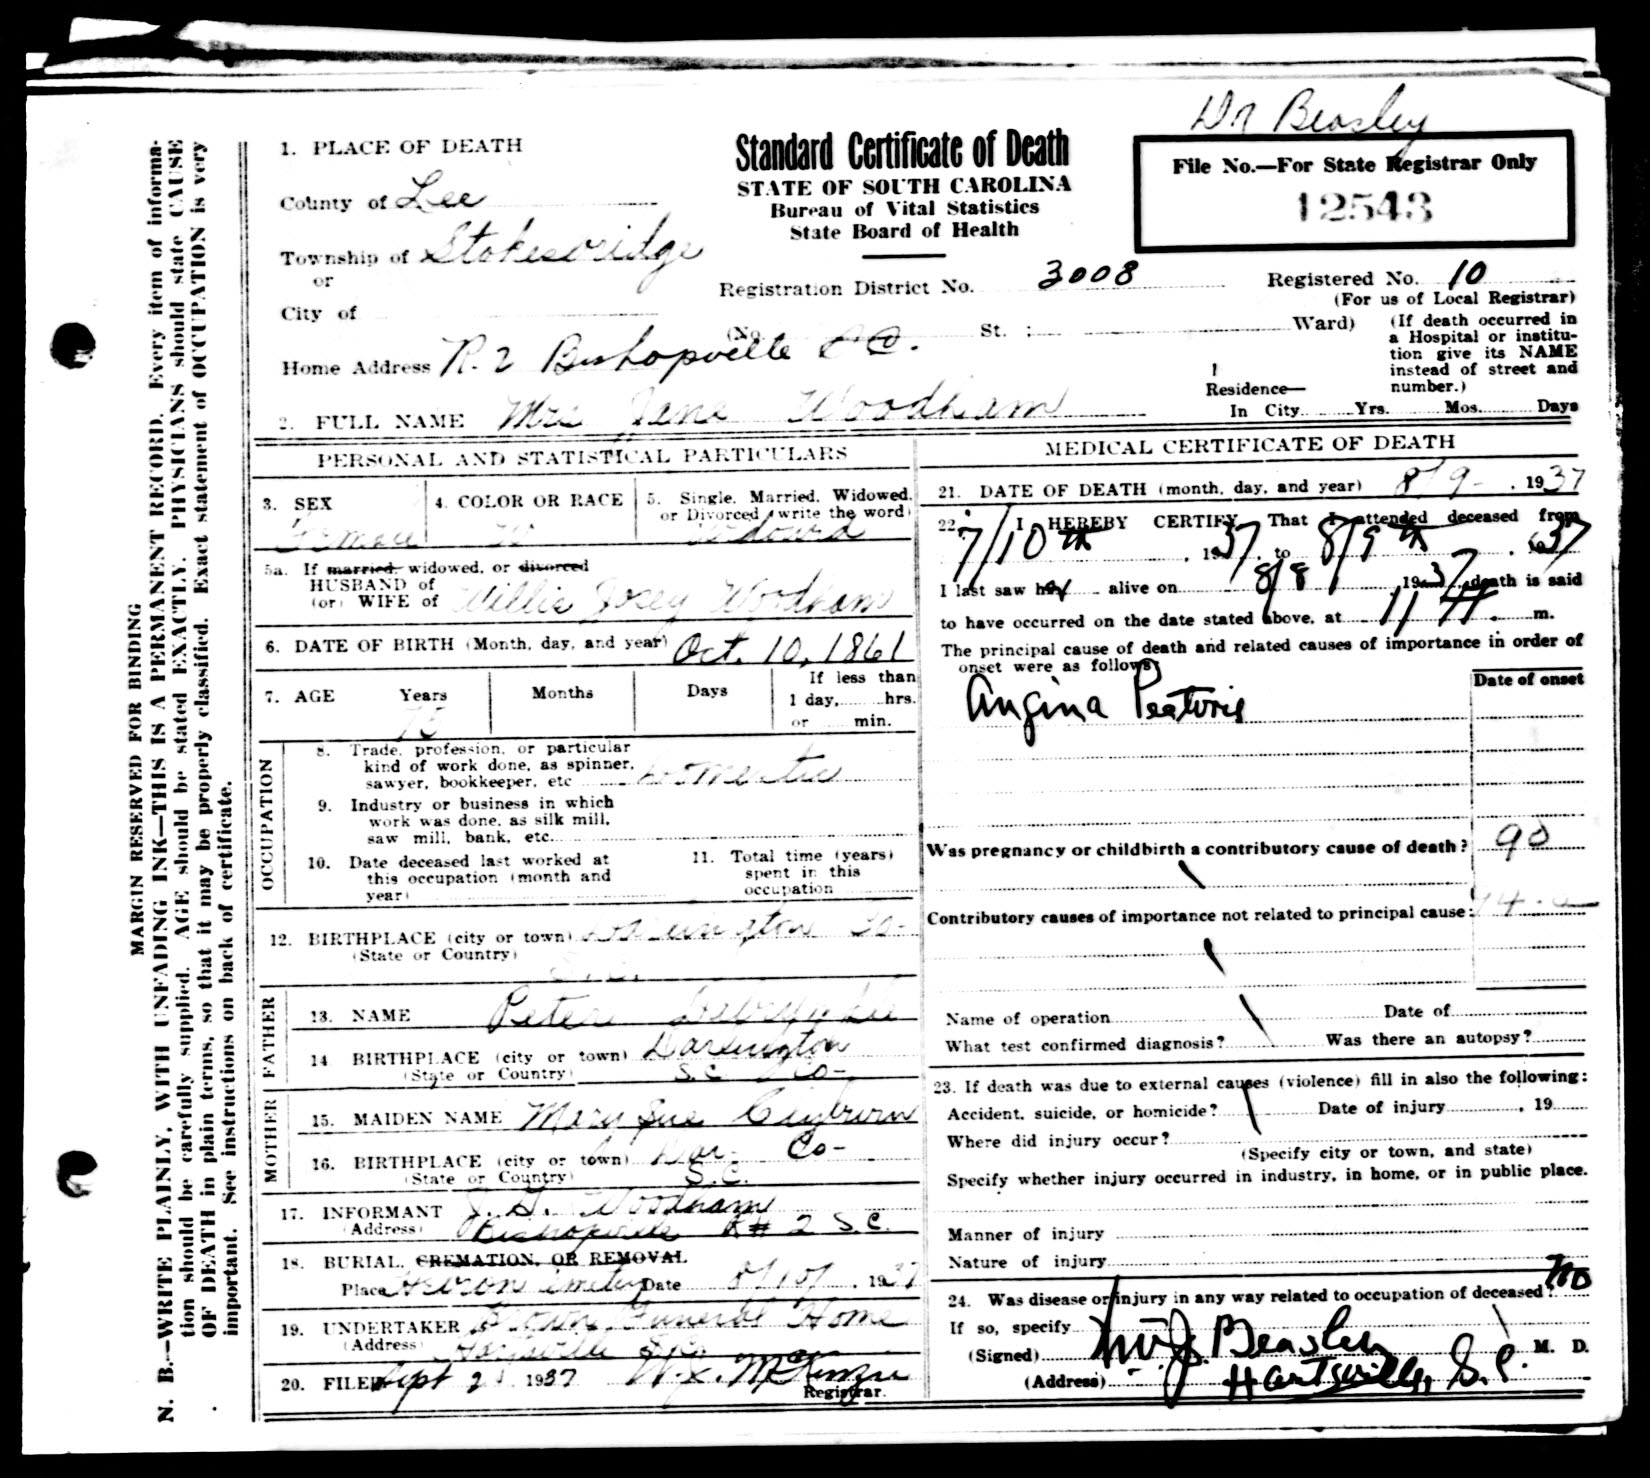 Dr Beasley
Standard Certificate of Death
STATE OF SOUTH CAROLINA
Bureau of Vital Statistics
State Board of Health
File No.—For State Registrar Only
12543
1. PLACE OF DEATH
County of Lee
Township of Stokesbridge
or
City of
Registration District No. 3008
Registered No. 10
(For us of Local Registrar)
(No. St. ; Ward)
(If death occurred in
a Hospital or institu-
tion give its NAME
instead of street and
number.)
Home Address R. 2 Bishopville S.C.
Residence—
In City Yrs. Mos. Days
2. FULL NAME Mrs Jane Woodham
PERSONAL AND STATISTICAL PARTICULARS
3. SEX
Female
4. COLOR OR RACE
W
5. Single, Married, Widowed,
or Divorced (write the word)
Widowed
5a. If married, widowed, or divorced
HUSBAND of
(or) WIFE of Willis Josey Woodham
6. DATE OF BIRTH (Month, day, and year) Oct. 10, 1861
7. AGE Years Months Days
If less than
1 day, hrs.
or min.
OCCUPATION
8. Trade, profession, or particular
kind of work done, as spinner,
sawyer, bookkeeper, etc Domestic
9. Industry or business in which
work was done, as silk mill,
saw mill, bank, etc.
10. Date deceased last worked at
this occupation (month and
year)
11. Total time (years)
spent in this
occupation
12. BIRTHPLACE (city or town) Darlington Co-
(State or Country)
S.C.
FATHER
13. NAME Peter
14 BIRTHPLACE (city or town) Darlington
(State or Country) S.C Co-
MOTHER
15. MAIDEN NAME Mary Sue Clyburn
16. BIRTHPLACE (city or town) Dar- Co-
(State or Country) S.C.
17. INFORMANT J. G. Woodham
(Address) Bishopville R# 2 S.C.
18. BURIAL, CREMATION, OR REMOVAL
Place Hebron Date 8/10/ , 1937
19. UNDERTAKER Brown Funeral Home
(Address) Hartsville S.C.
20. FILED Sept 2 1937 W. L. McKenzie
Registrar.
MEDICAL CERTIFICATE OF DEATH
21. DATE OF DEATH (month, day, and year) 8/9- , 1937
22. I HEREBY CERTIFY, That I attended deceased from
7/10th , 1937, to 8/9th , 1937
I last saw her alive on 8/8 1937, death is said
to have occurred on the date stated above, at 11 A. m.
The principal cause of death and related causes of importance in order of
onset were as follows:
Date of onset
Angina Pectoris
Was pregnancy or childbirth a contributory cause of death?
90
Contributory causes of importance not related to principal cause:
Name of operation Date of
What test confirmed diagnosis? Was there an autopsy?
23. If death was due to external causes (violence) fill in also the following:
Accident, suicide, or homicide? Date of injury , 19
Where did injury occur?
(Specify city or town, and state)
Specify whether injury occurred in industry, in home, or in public place.
Manner of injury
Nature of injury
24. Was disease or injury in any way related to occupation of deceased? No
If so, specify
(Signed) Beasley M. D.
(Address) Hartsville, S.C.
MARGIN RESERVED FOR BINDING
N. B.—WRITE PLAINLY, WITH UNFADING INK—THIS IS A PERMANENT RECORD. Every item of informa-
tion should be carefully supplied. AGE should be stated EXACTLY. PHYSICIANS should state CAUSE
OF DEATH in plain terms, so that it may be properly classified. Exact statement of OCCUPATION is very
important. See instructions on back of certificate.